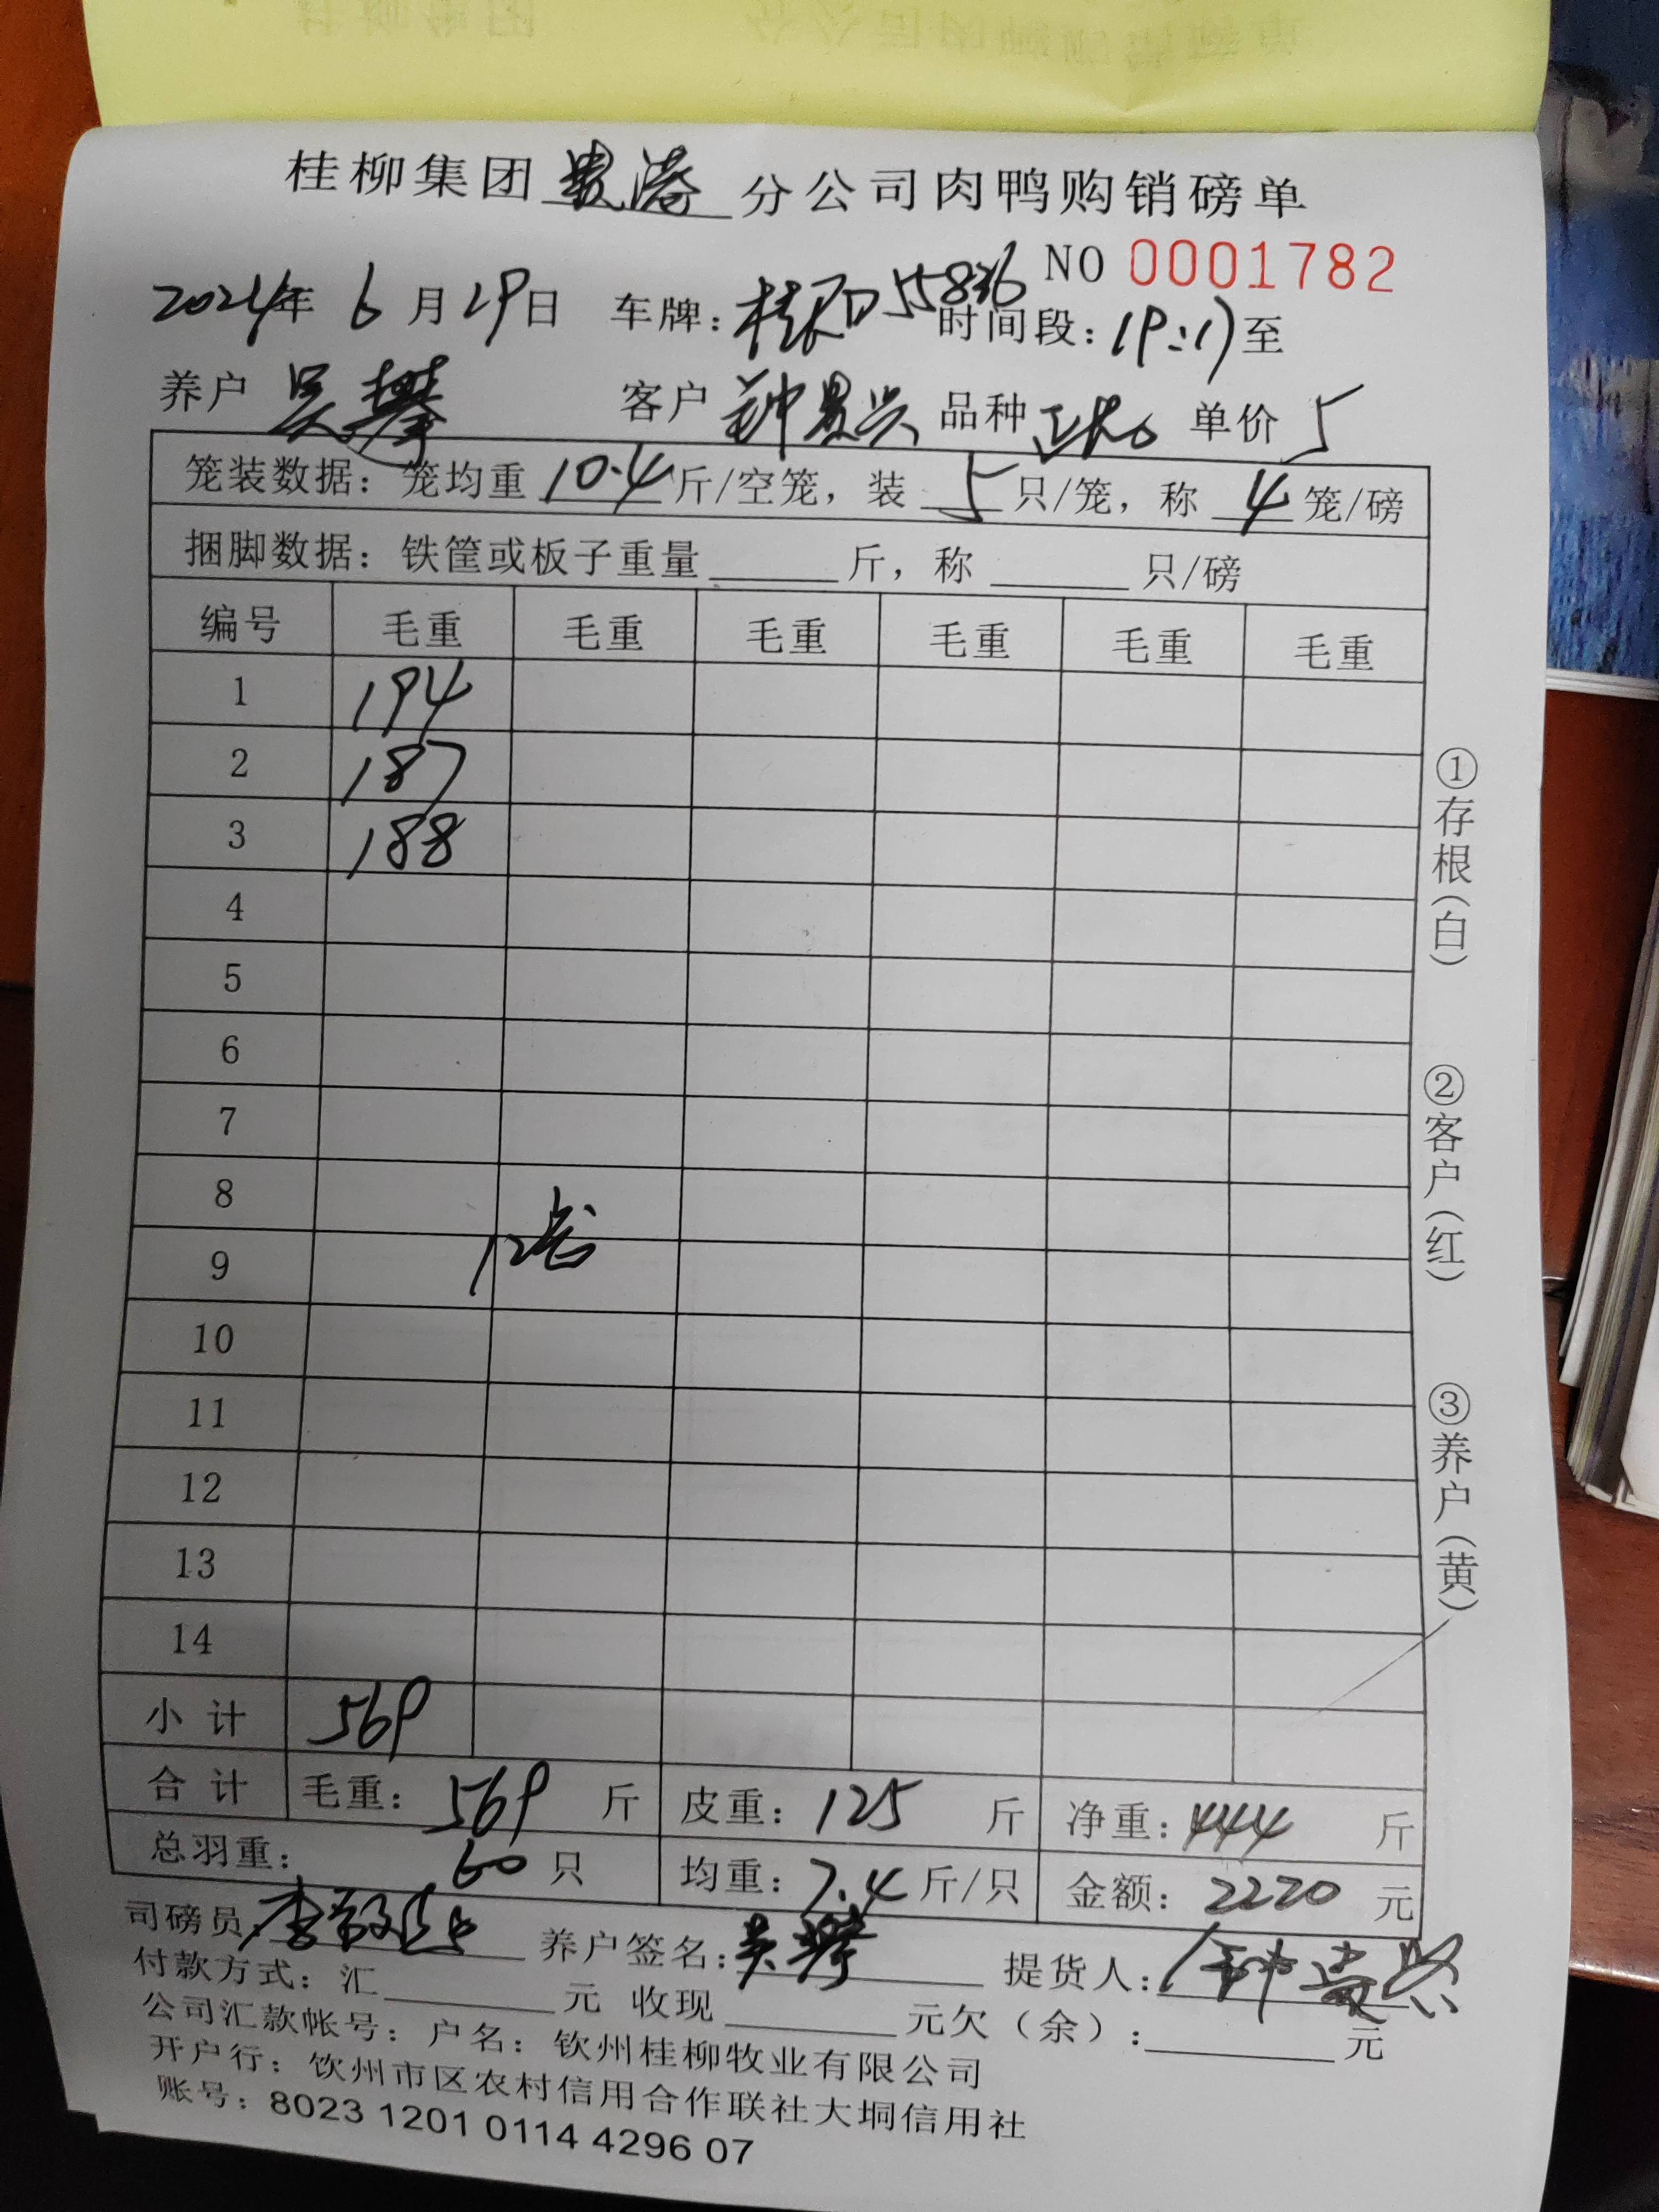 桂柳集团贵港分公司肉鸭购销磅单
NO 0001782
2024年 6月29日 车牌: 桂 时间段: 19:17至
养户 吴攀 客户 钟贵兴 品种 单价 5
笼装数据: 笼均重 10.4 斤/空笼, 装 5 只/笼, 称 4 笼/磅
捆脚数据: 铁筐或板子重量 斤, 称 只/磅
编号 毛重 毛重 毛重 毛重 毛重 毛重
1 194
2 187
3 188
4
5
6
7
8
12笼
9
10
11
12
13
14
小计 569
合计 毛重: 569 斤 皮重: 125 斤 净重: 444 斤
总羽重: 60 只 均重: 7.4 斤/只 金额: 2220 元
司磅员: 李 养户签名: 吴攀 提货人: 钟贵兴
付款方式: 汇 元 收现 元欠(余): 元
公司汇款帐号: 户名: 钦州桂柳牧业有限公司
开户行: 钦州市区农村信用合作联社大垌信用社
账号: 8023 1201 0114 4296 07
①存根(白)
②客户(红)
③养户(黄)